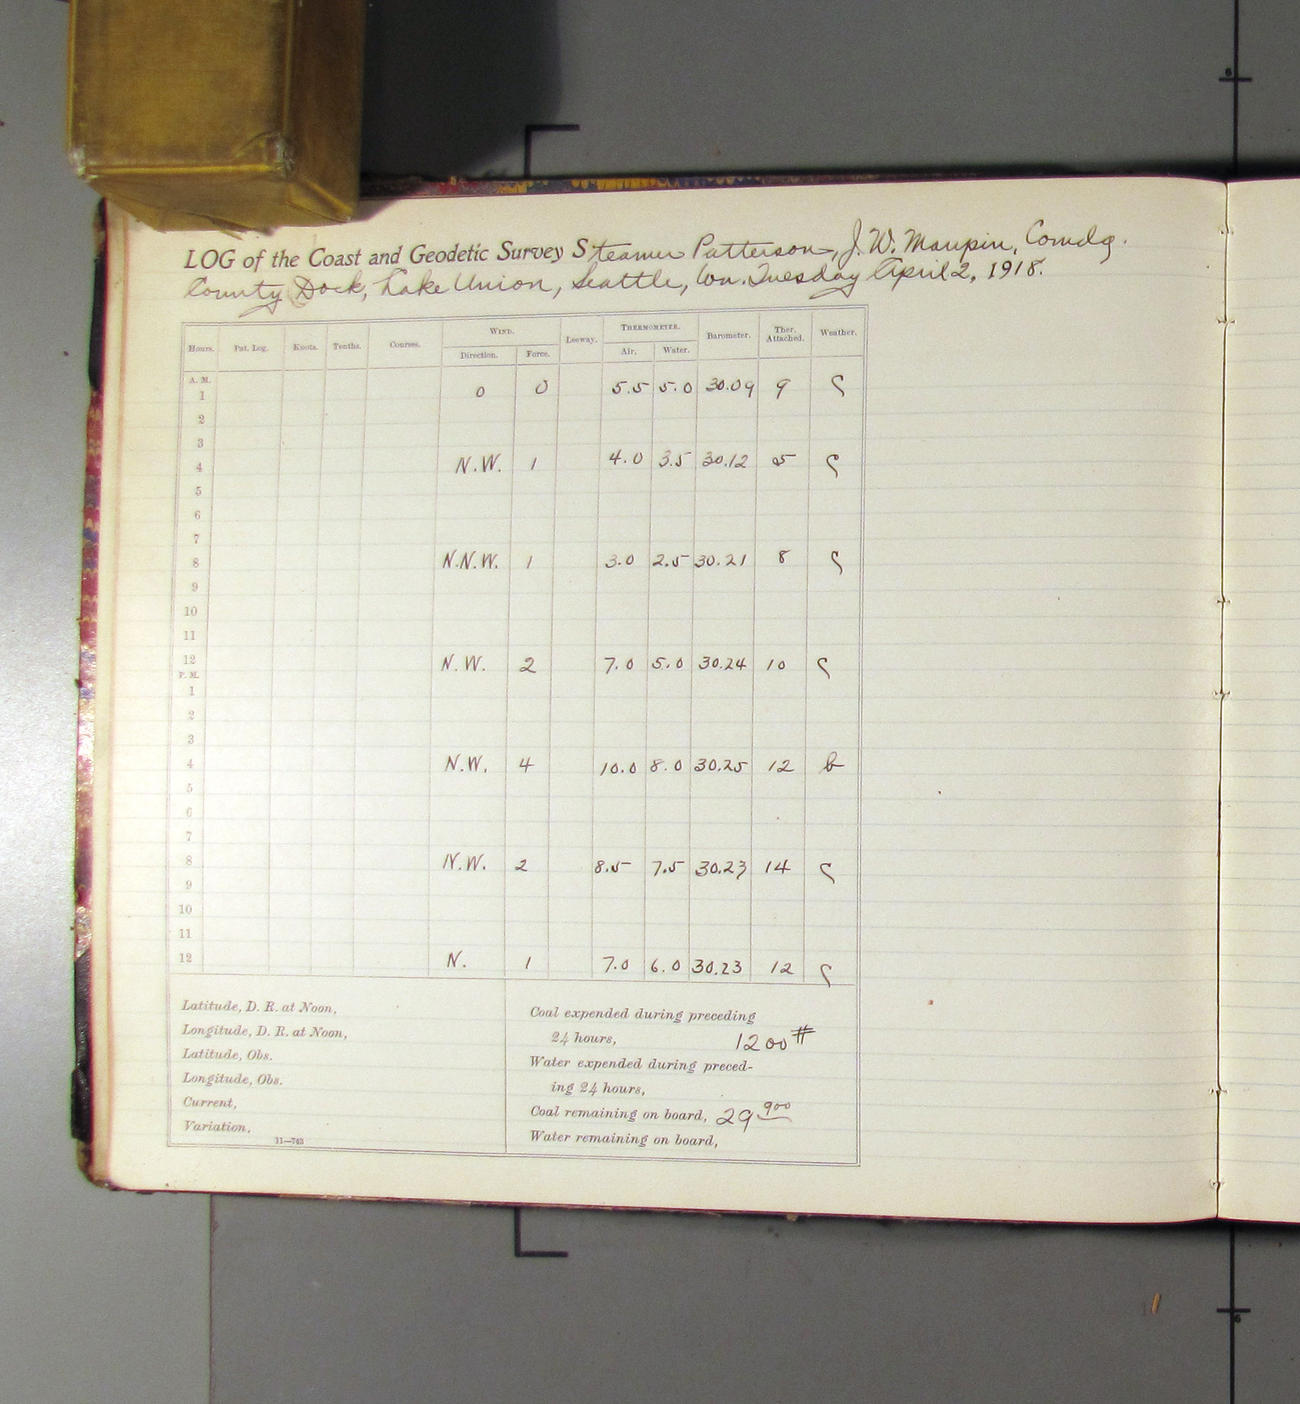 LOG of the Coast and Geodetic Survey Steamer Patterson, J. W. Maupin, Comdg.
County Dock, Lake Union, Seattle, Wn. Tuesday April 2, 1918.
Hours. Pat. Log. Knots. Tenths. Courses. WIND. Leeway. THERMOMETER. Barometer. Ther. Attached. Weather.
Direction. Force. Air. Water.
A. M.
1 0 0 5.5 5.0 30.09 9 c
2
3
4 N.W. 1 4.0 3.5 30.12 5 c
5
6
7
8 N.N.W. 1 3.0 2.5 30.21 8 c
9
10
11
12 N.W. 2 7.0 5.0 30.24 10 c
P. M.
1
2
3
4 N.W. 4 10.0 8.0 30.25 12 b
5
6
7
8 N.W. 2 8.5 7.5 30.23 14 c
9
10
11
12 N. 1 7.0 6.0 30.23 12 c
Latitude, D. R. at Noon,
Longitude, D. R. at Noon,
Latitude, Obs.
Longitude, Obs.
Current,
Variation,
11—763
Coal expended during preceding
24 hours, 1200#
Water expended during preced-
ing 24 hours,
Coal remaining on board, 29 900
Water remaining on board,